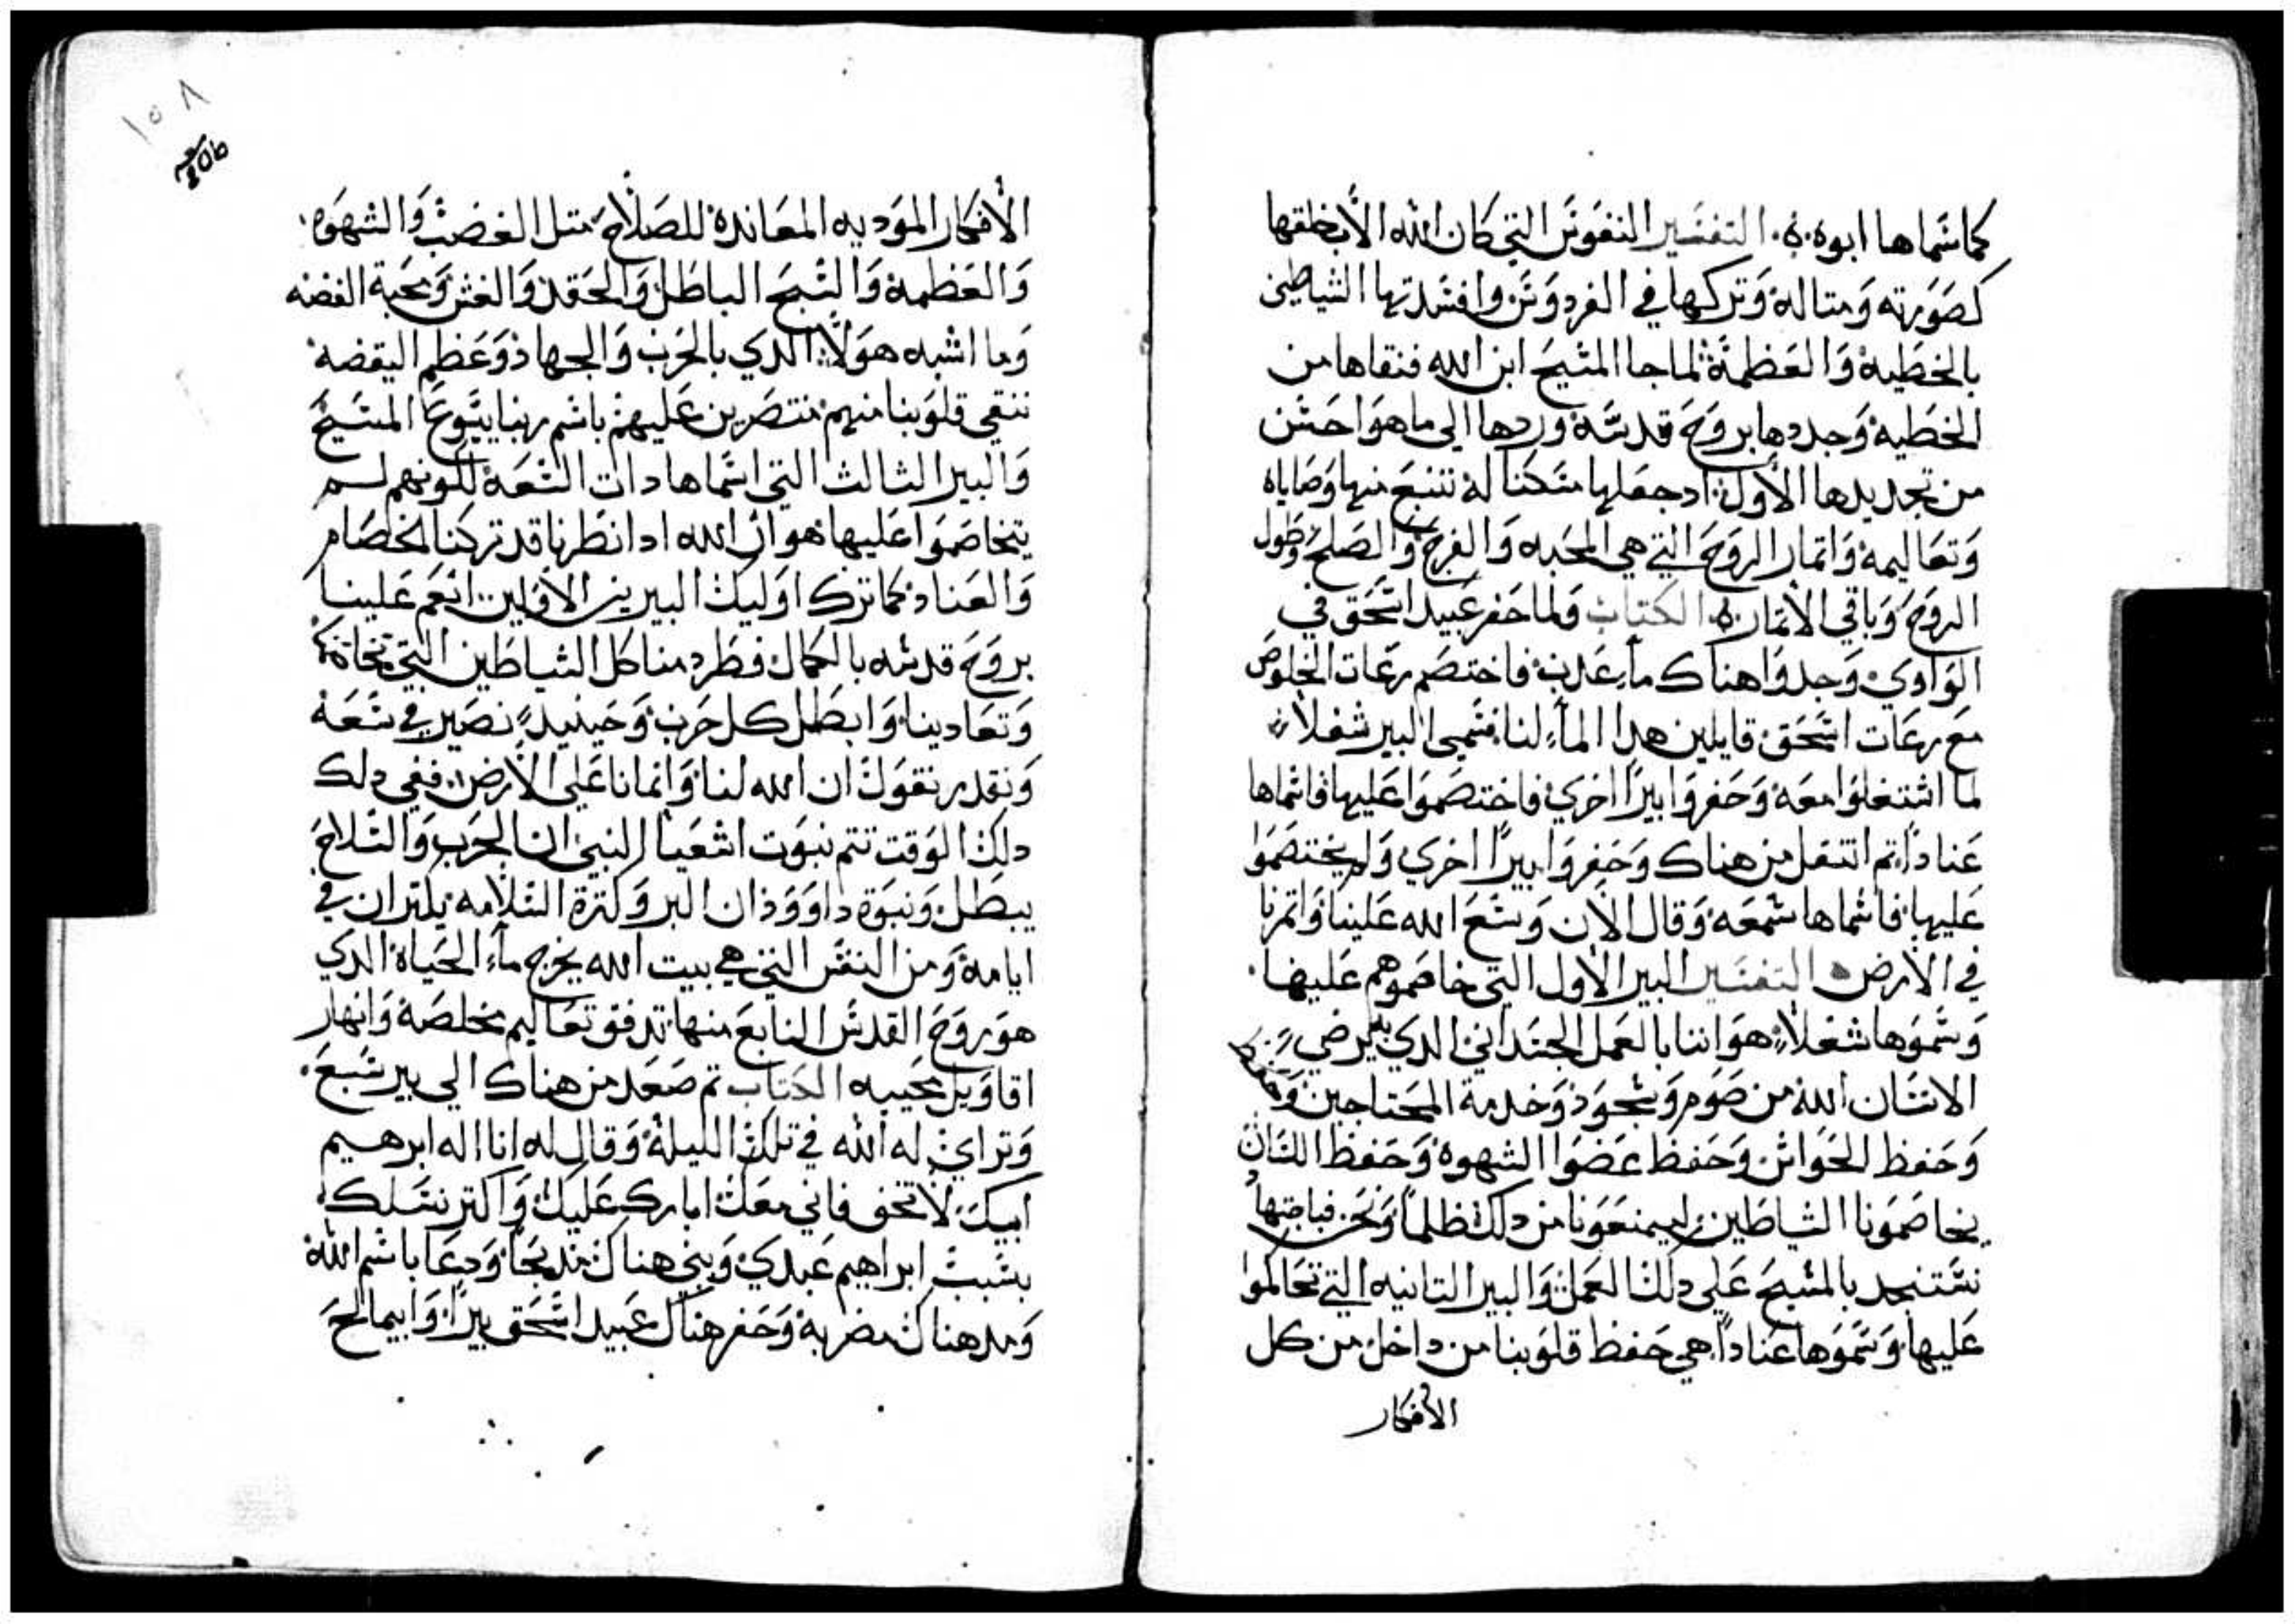 كما سماها ابوه ٠ة٠ التفسير النفوس التي كان الله الاب خلقها
كصورته ومتاله وتركها في الفردوس وافسدتها الشياطين
بالخطية والعظمة لما جا المسيح ابن الله فنقاها من
الخطية وجددها بروح قدسه وردها الي ما هو احسن
من تجديدها الاول اد جعلها مسكنا له تنبع منها وصاياه
وتعاليمه واتمار الروح التي هي المحبه والفرح والصلح وطول
الروح وباقي الاتمار ٠ة٠ الكتاب ولما حفر عبيد اسحق في
الوادي وجدوا هناك مآء عدب فاختصم رعات الخلوص
مع رعات اسحق قايلين هدا المآء لنا فسمي البير شغلاً
لما اشتغلوا معه وحفروا بيرًا اخري فاختصموا عليها فاسماها
عنادًا تم انتقل من هناك وحفروا بيرًا اخري ولم يختصموا
عليها فاسماها سعه وقال الان وسع الله علينا واتمرنا
في الارض ة التفسير البير الاول التي خاصموهم عليها
وسموها شغلاً هو اننا بالعمل الجسداني الدي يرضي
الانسان الله من صوم وسجود وخدمة المحتاجين وحفظ
وحفظ الحواس وحفظ عضوا الشهوة وحفظ اللسان
يخاصمونا الشياطين ليمنعونا من دلك ظلماً ونحن
نستنجد بالمسيح علي دلك العمل والبير التانيه التي تحاكموا
عليها وسموها عنادًا هي حفظ قلوبنا من داخل من كل
الافكار
١٥٨
الافكار الموديه المعانده للصلاح متل الغضب والشهوه
والعظمة والسبح الباطل والحقد والغش ومحبة الفضه
وما اشبه هولاً الدي بالحرب والجهاد وعظم اليقضه
ننقي قلوبنا منهم منتصرين عليهم باسم ربنا يسوع المسيح
والبير الثالث التي اسماها دات السعة لكونهم لسم
يتخاصموا عليها هو ان الله ادا نظرنا قد تركنا الخصام
والعناد كما ترك اوليك البيرين الاولين انعم علينا
بروح قدسه بالكمال فطرد منا كل الشياطين التي تحاكمنا
وتعادينا وابطل كل حرب وحينيدٍ نصير في سعة
ونقدر نقول ان الله لنا وانمانا علي الارض ففي دلك
دلك الوقت تتم نبوت اشعيا النبي ان الحرب والسلاح
يبطل ونبوة داوود ان البر وكترة السلامه يكتران في
ايامه ومن النفس التي هي بيت الله يخرج مآء الحياة الدي
هو روح القدس النابع منها تدفق تعاليم مخلصة وانهار
اقاويل محييه الكتاب تم صعد من هناك الي بير سبع
وتراي له الله في تلك الليلة وقال له انا اله ابرهيم
ابيك لا تخف فاني معك ابارك عليك واكتر نسلك
بسبب ابراهيم عبدي وبني هناك مدبحاً ودعا باسم الله
ومد هناك مضربه وحفر هناك عبيد اسحق بيرًا وابيمالخ